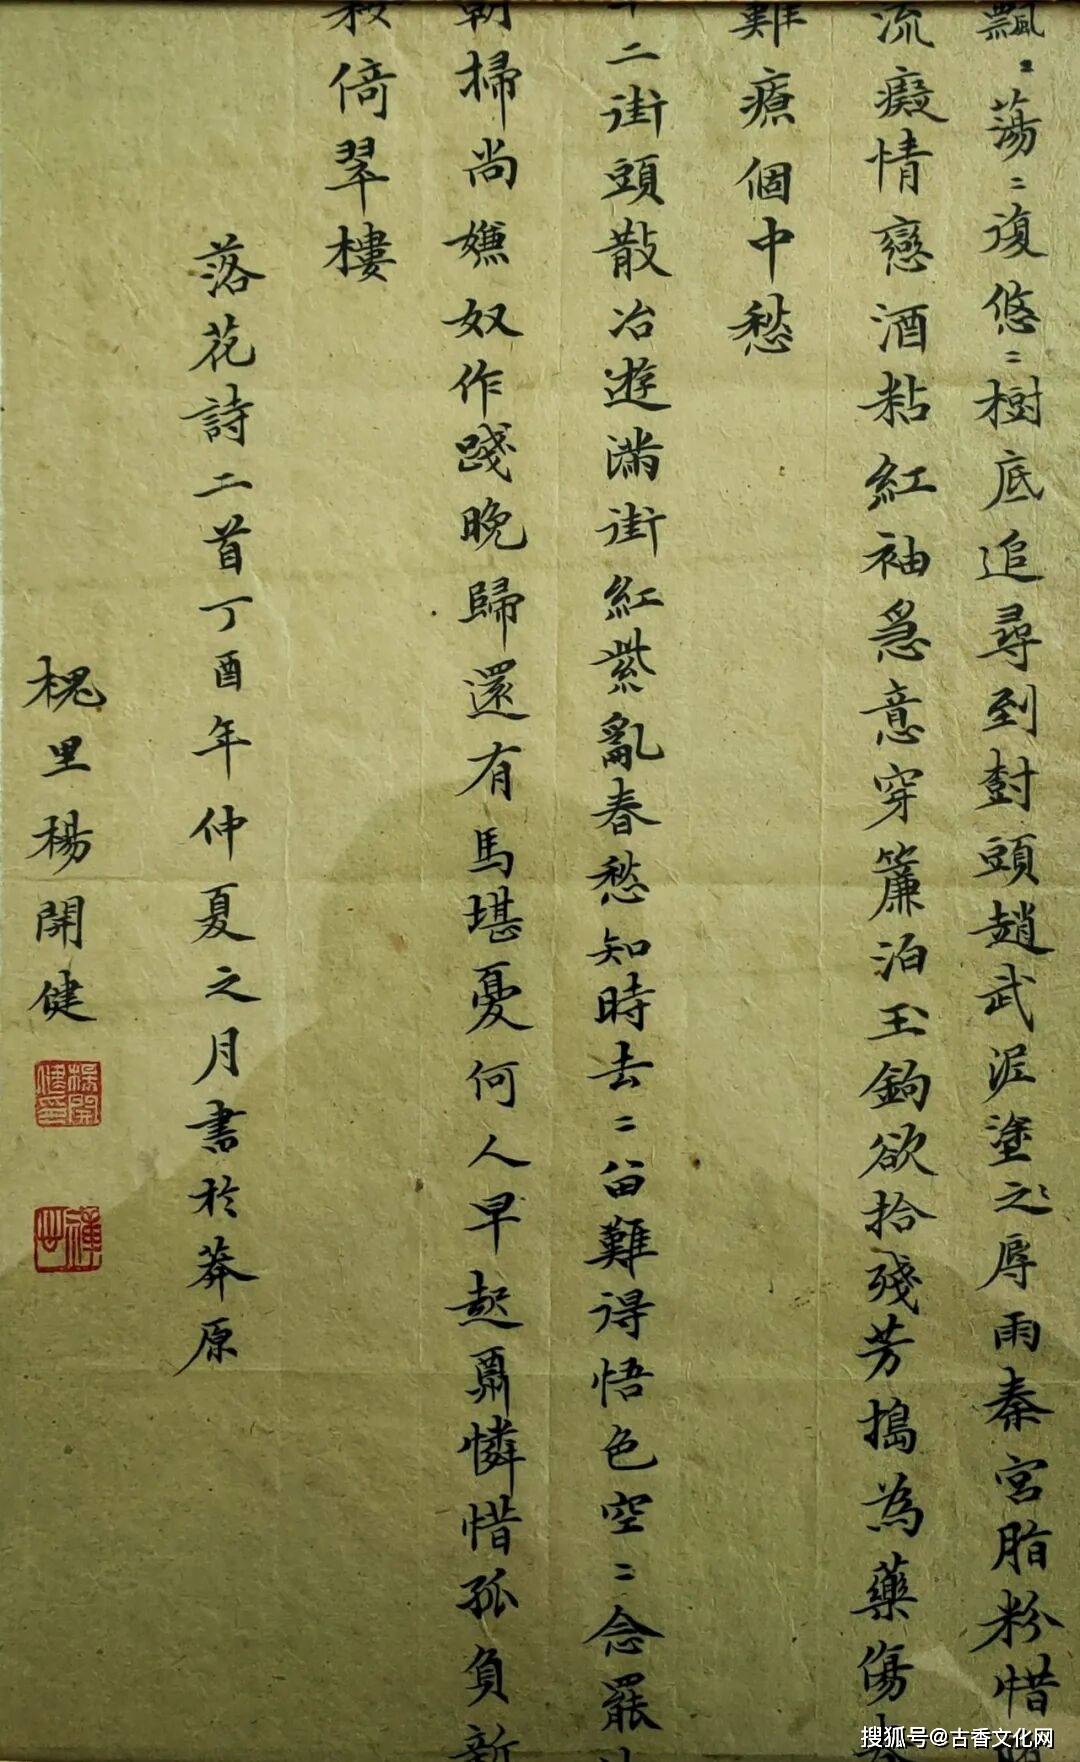 飄〻蕩〻復悠〻樹底追尋到對頭趙武泥塗之〻辱雨秦宮脂粉惜
流癡情戀酒粘紅袖急意穿簾泊玉鉤欲拾殘芳搗為藥傷
難療個中愁
二街頭散冶遊滿街紅紫亂春愁知時去〻留難得悟色空〻念罷
朝掃尚嫌奴作踐晚歸還有馬堪憂何人早起肅憐惜孤負新
倚翠樓
落花詩二首丁酉年仲夏之月書於莽原
槐里楊開健
楊開健印
搜狐号@古香文化网